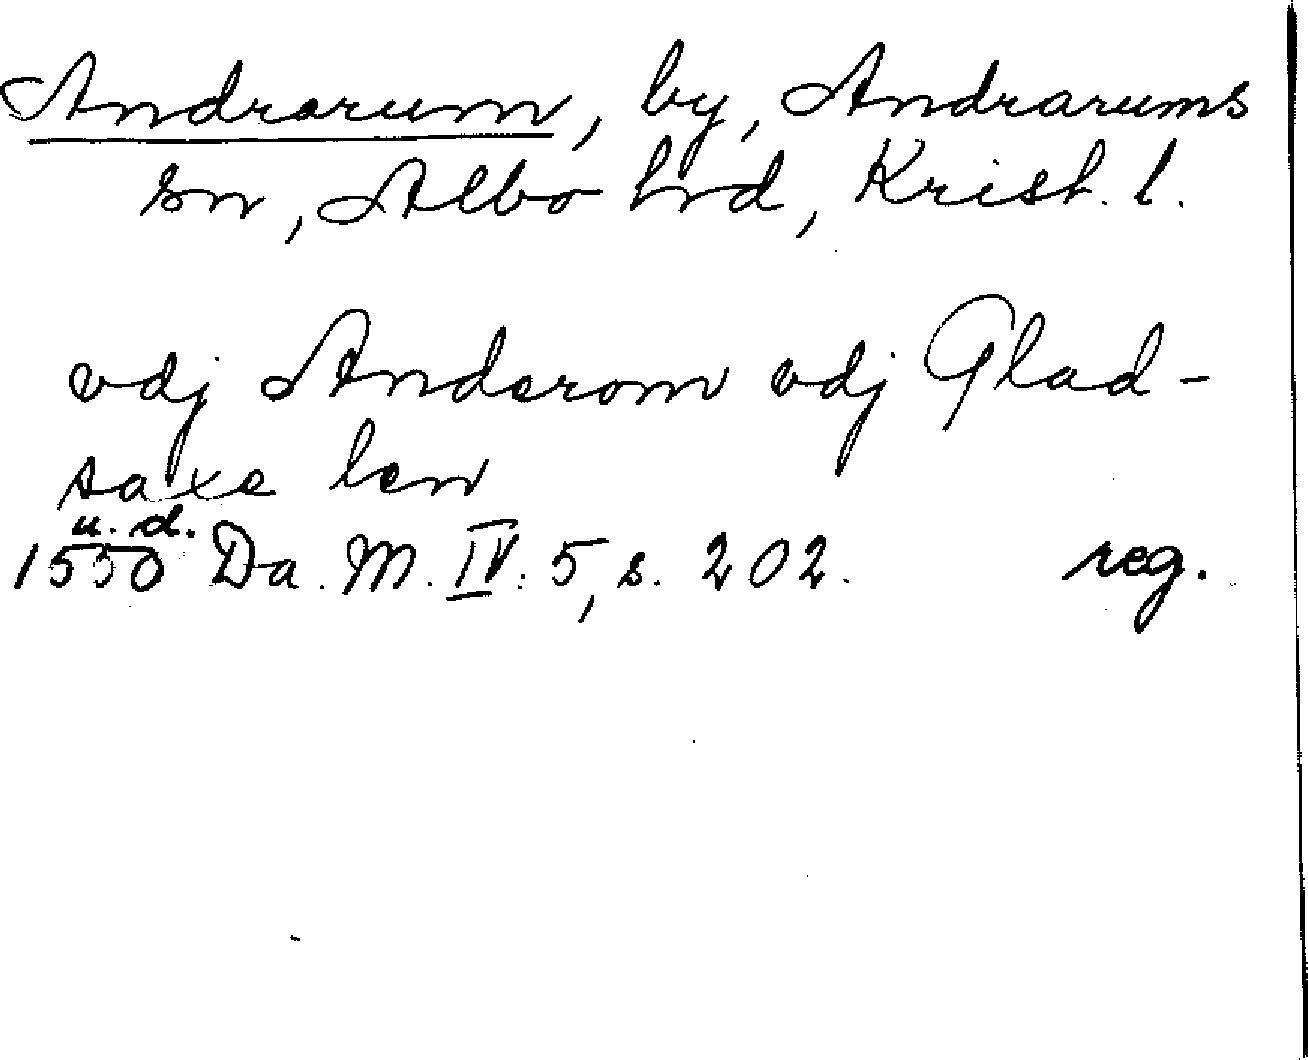 Andrarum, by, Andrarums
sn, Albo hrd, Krist. l.
vdj Anderom vdj Glad-
saxe len
u. d.
1550 Da. M. IV: 5, s. 202. reg.